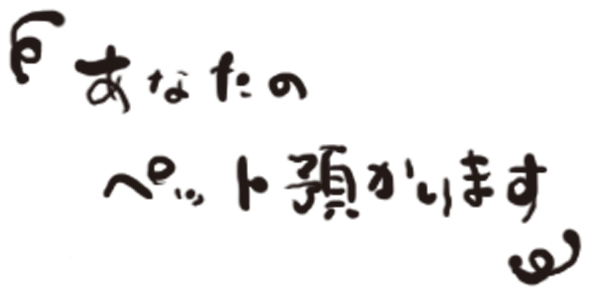 あなたの
ペット預かります